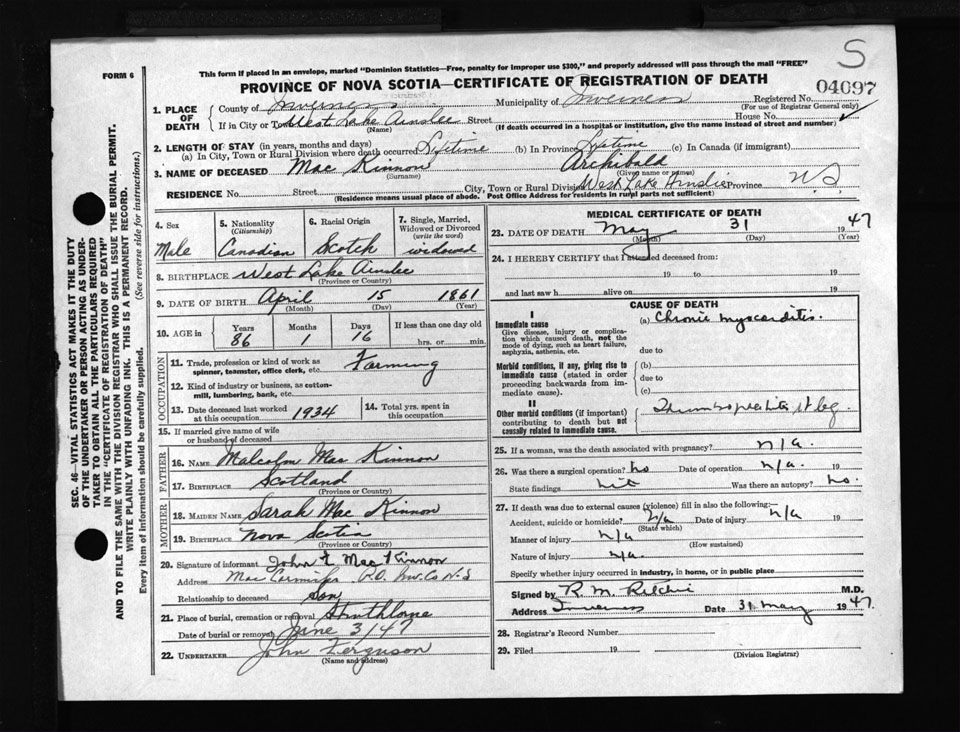 S
FORM 6
This form if placed in an envelope, marked "Dominion Statistics—Free, penalty for improper use $300," and properly addressed will pass through the mail "FREE"
PROVINCE OF NOVA SCOTIA—CERTIFICATE OF REGISTRATION OF DEATH
04097
1. PLACE OF DEATH
County of Inverness Municipality of Inverness Registered No.
(For use of Registrar General only)
If in City or Town West Lake Ainslee Street House No.
(Name) (If death occurred in a hospital or institution, give the name instead of street and number)
2. LENGTH OF STAY (in years, months and days)
(a) In City, Town or Rural Division where death occurred Lifetime (b) In Province Lifetime (c) In Canada (if immigrant)
3. NAME OF DECEASED Mac Kinnon Archibald
(Surname) (Given name or names)
RESIDENCE No. Street City, Town or Rural Division West Lake Ainslie Province N.S.
(Residence means usual place of abode. Post Office Address for residents in rural parts not sufficient)
4. Sex
Male
5. Nationality
(Citizenship)
Canadian
6. Racial Origin
Scotch
7. Single, Married, Widowed or Divorced
(write the word)
widowed
8. BIRTHPLACE West Lake Ainslee
(Province or Country)
9. DATE OF BIRTH April 15 1861
(Month) (Day) (Year)
10. AGE in
Years Months Days If less than one day old
86 1 16 hrs. or min.
OCCUPATION
11. Trade, profession or kind of work as spinner, teamster, office clerk, etc. Farming
12. Kind of industry or business, as cotton-mill, lumbering, bank, etc.
13. Date deceased last worked at this occupation 1934
14. Total yrs. spent in this occupation
15. If married give name of wife or husband of deceased
FATHER
16. NAME Malcolm Mac Kinnon
17. BIRTHPLACE Scotland
(Province or Country)
MOTHER
18. MAIDEN NAME Sarah Mac Kinnon
19. BIRTHPLACE Nova Scotia
(Province or Country)
20. Signature of informant John Mac Kinnon
Address P.O. Inv. Co N.S
Relationship to deceased Son
21. Place of burial, cremation or removal Strathlorne
Date of burial or removal June 3/47
22. UNDERTAKER John Ferguson
(Name and address)
MEDICAL CERTIFICATE OF DEATH
23. DATE OF DEATH May 31 1947
(Month) (Day) (Year)
24. I HEREBY CERTIFY that I attended deceased from:
19 to 19
and last saw h alive on 19
CAUSE OF DEATH
I
Immediate cause
Give disease, injury or complication which caused death, not the mode of dying, such as heart failure, asphyxia, asthenia, etc.
(a) Chronic myocarditis.
due to
Morbid conditions, if any, giving rise to immediate cause (stated in order proceeding backwards from immediate cause)
(b)
due to
(c)
II
Other morbid conditions (if important) contributing to death but not causally related to immediate cause.
leg
25. If a woman, was the death associated with pregnancy? n/a.
26. Was there a surgical operation? no Date of operation n/a. 19
State findings Was there an autopsy? no.
27. If death was due to external causes (violence) fill in also the following:
Accident, suicide or homicide? n/a Date of injury n/a 19
(State which)
Manner of injury n/a
(How sustained)
Nature of injury n/a.
Specify whether injury occurred in industry, in home, or in public place
Signed by R. M. Ritchie M.D.
Address Inverness Date 31 May 1947.
28. Registrar's Record Number
29. Filed 19
(Division Registrar)
SEC. 46—VITAL STATISTICS ACT MAKES IT THE DUTY
OF THE UNDERTAKER OR PERSON ACTING AS UNDER-
TAKER TO OBTAIN ALL THE PARTICULARS REQUIRED
IN THE "CERTIFICATE OF REGISTRATION OF DEATH"
AND TO FILE THE SAME WITH THE DIVISION REGISTRAR WHO SHALL ISSUE THE BURIAL PERMIT.
WRITE PLAINLY WITH UNFADING INK. THIS IS A PERMANENT RECORD.
Every item of information should be carefully supplied. (See reverse side for instructions.)